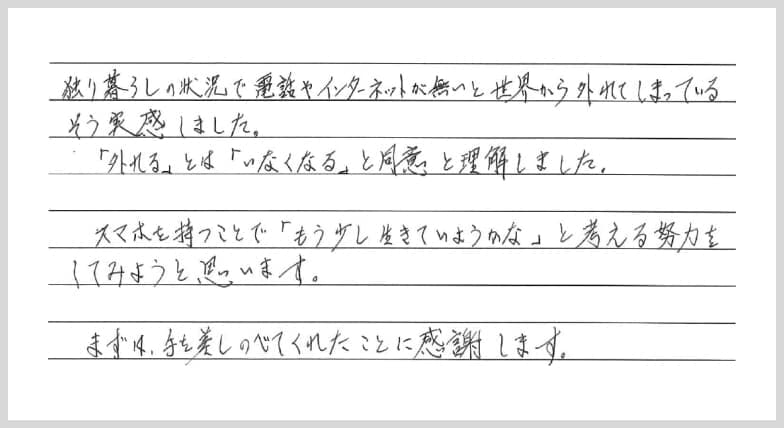 独り暮らしの状況で電話やインターネットが無いと世界から外れてしまっている
そう実感しました。
「外れる」とは「いなくなる」と同意と理解しました。
スマホを持つことで「もう少し生きていようかな」と考える努力を
してみようと思います。
まずは、手を差しのべてくれたことに感謝します。